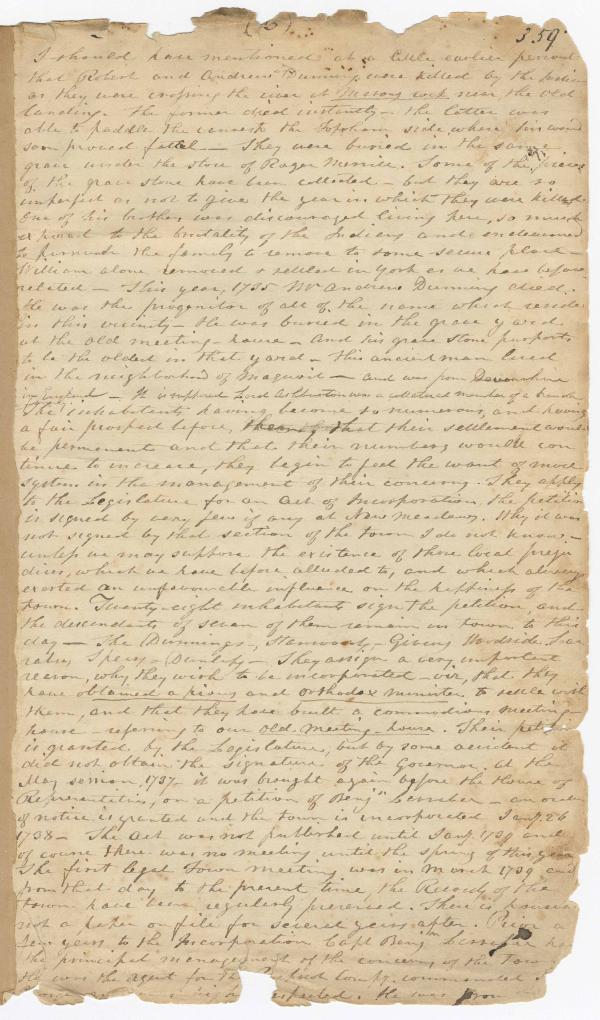 (6)
359
I should have mentioned at a little earlier period
that Robert and Andrew Dunning were killed by the Indians
as they were crossing the river at Masons rock near the Old
landing. The former died instantly — the latter was
able to paddle the canoe to the Topsham side, where his wound
soon proved fatal — They were buried in the same
grave under the store of Roger Merrill. Some of the pieces
of the grave stone have been collected — but they are so
imperfect as not to give the year in which they were killed.
One of his brothers was discouraged living here, so much
exposed to the brutality of the Indians and endeavoured
to persuade the family to remove to some secure place —
William alone removed & settled in York as we have before
related — This year, 1735 Mr Andrew Dunning died.
He was the progenitor of all of the name which reside
in this vicinity — He was buried in the grave yard
at the old meeting-house — And his grave stone purports
to be the oldest in that yard — this ancient man lived
in the neighborhood of Maquoit — and was from Devonshire
in England — It is supposed Lord Ashburton was a member of a
The inhabitants having become so numerous, and having
a fair prospect before, that their settlement would
be permanent and that their numbers would con
tinue to increase, they begin to feel the want of more
system in the management of their concerns. They apply
to the Legislature for an act of Incorporation, the petition
is signed by very few if any at New Meadows. Why it was
not signed by that section of the town I do not know, —
unless we may suppose the existence of those local preju
dices, which we have before alluded to, and which always
exerted an unfavourable influence on the happiness of the
town. Twenty-eight inhabitants sign the petition, and
the descendants of seven of them remain in town to this
day — The Dunnings, Stanwoods, Givens Woodside
Spear — Dunlap — They assign a very important
reason, why they wish to be incorporated — viz, that they
have obtained a pious and Orthodox minister to settle with
them, and that they have built a commodious meeting-
house — referring to our Old Meeting-house. Their petition
is granted by the Legislature, but by some accident it
did not obtain the signature of the Governor. At the
May session, 1737 — it was brought again before the House of
Representatives, on a petition of Benjn Larrabee — an order
of notice is granted and the town is incorporated Jany. 26
1738 — The Act was not published until Jany. 1739 and
of course there was no meeting until the spring of this year.
The first legal Town meeting was in March 1739 and
from that day to the present time, the Records of the
town have been regularly preserved. There is however
not a paper on file for several years after. Prior a
few years to the Incorporation Capt Benjn Larrabee
the principal management of the concerns of the Town
He was the agent for the compy. commanded
respected. He was from